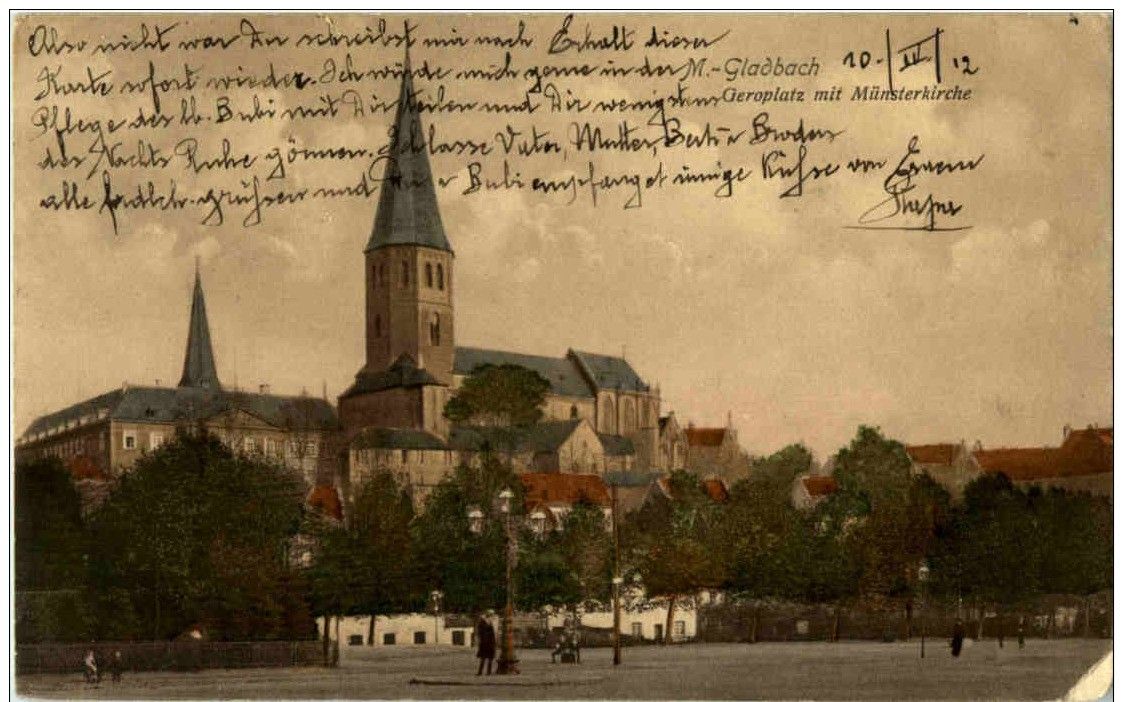 Also nicht war Du schreibst mir nach Erhalt dieser
Karte sofort wieder. Ich würde mich gerne in der
M.-Gladbach 10. IV. 12
Pflege des lb. Bubi mit Dir teilen und Dir wenigstens
Geroplatz mit Münsterkirche
des Nachts Ruhe gönnen. Ich lasse Vater, Mutter, Berti u Broders
alle frdlch. grühsen und Du u Bubi empfanget innige Kühse von Eurem